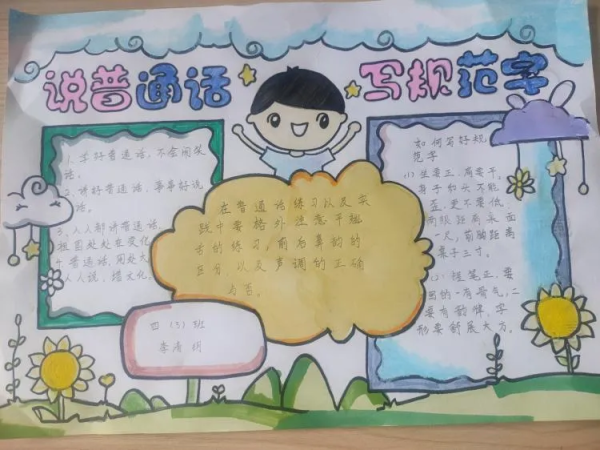 说普通话
写规范字
1. 学好普通话,不会闹笑
话。
2. 讲好普通话,事事好说
话。
3. 人人都讲普通话,
祖国处处在变化
4 普通话,用处大
人人说,增文化。
在普通话练习以及实
践中要格外注意平翘
舌的练习,前后鼻韵的
区分,以及声调的正确
与否。
四(3)班
李清
如何写好规
范字
(1)坐要正,肩要平。
身子和头不能
歪,更不要低。
两眼距离桌面
一尺,前胸距离
桌子三寸。
(2)、握笔正,要
画的一有骨气,二
要有韵律,字
形要舒展大方。